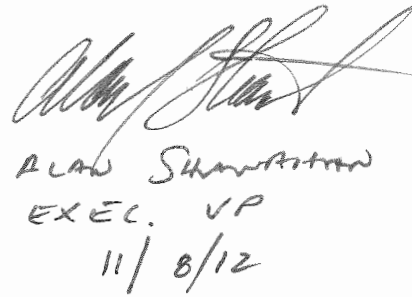 ALAN SHANAHAN
EXEC. VP
11/8/12